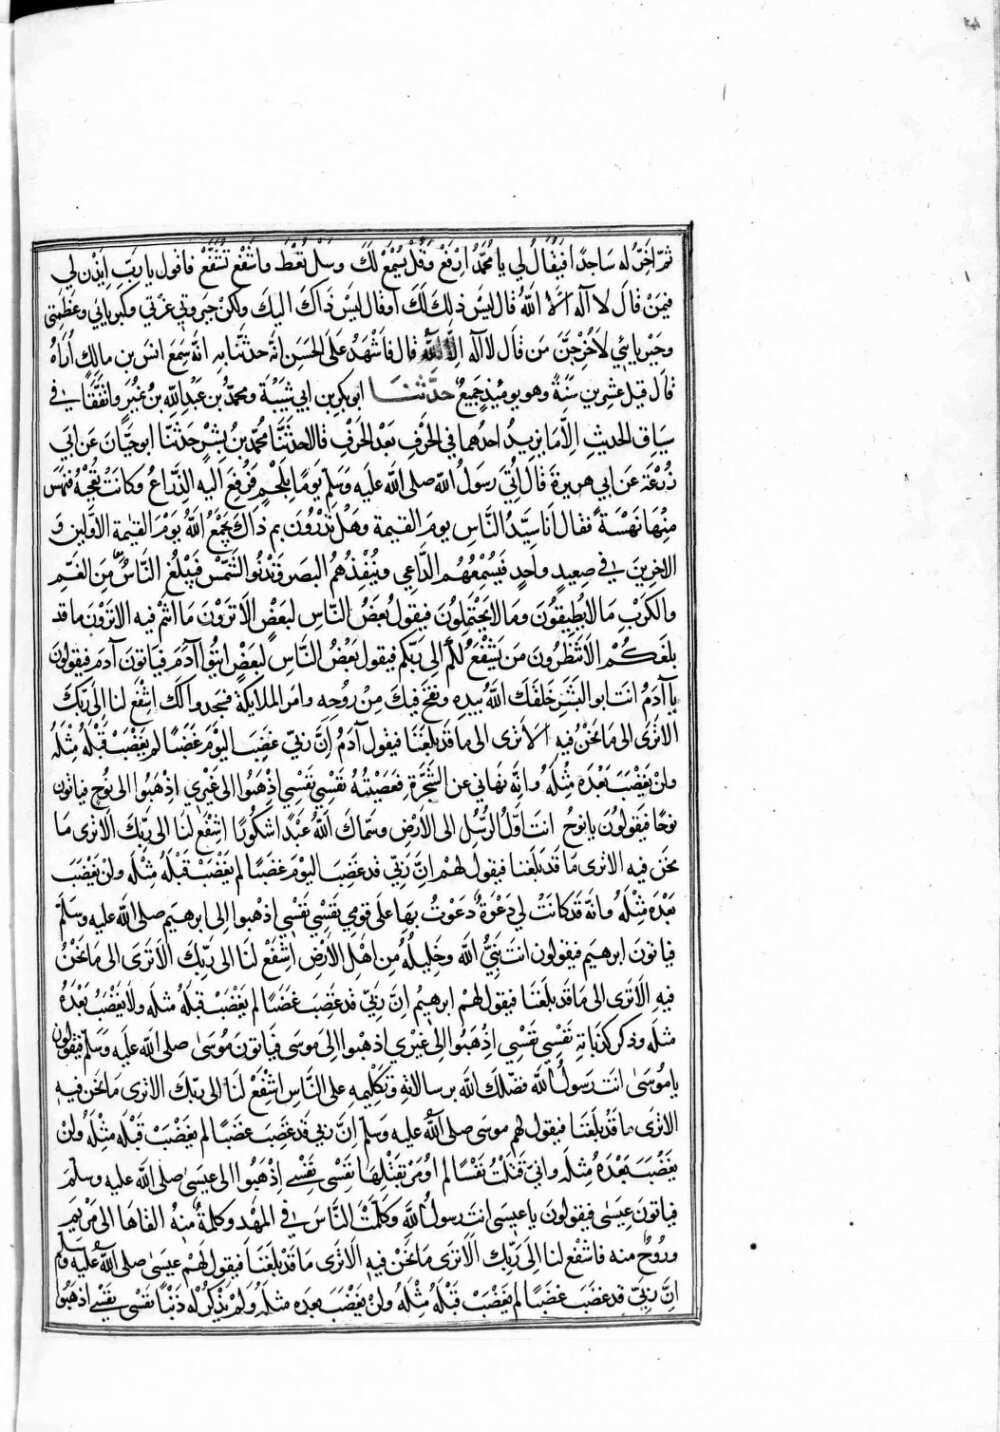 ثمّ اخرّ له ساجدًا فيُقال لي يا محمّد ارفع وقُلْ يُسْمع لك وسل تُعْطَ واشفع تُشفَّعْ فاقول يا ربّ ايذن لي
فيمن قال لا اله الا الله قال ليس ذلك لك او قال ليس ذاك اليك ولكن وعزتي وكبريائي وعظمتي
وجبريائي لأخرجنّ من قال لا اله الا الله قال فاشهد على الحسن انه حدثنا به انه سمع انس بن مالك أُراه
قال قبل عشرين سنةً وهو يومئذٍ جميعٌ حدّثنا ابو بكر بن ابي شيبة ومحمّد بن عبد الله بن نمير واتفقا في
سياق الحديث الّا ما يزيد احدهما في الحرف بعد الحرف قالا حدثنا محمّد بن بشر حدثنا ابو حيّان عن ابي
زرعة عن ابي هريرة قال أُتي رسول الله صلى الله عليه وسلم يومًا بلحمٍ فرُفع اليه الذّراعُ وكانت تعجبُهُ فنهس
منها نهْسَةً فقال انا سيّد النّاس يوم القيمة وهل تدرون بم ذاك يجمع الله يوم القيمة الاوّلين و
الاخرين في صعيدٍ واحدٍ فيُسْمعُهم الدّاعي وينفذهم البصر وتدنوا الشمس فيبلغ النّاسُ من الغمّ
والكرب ما لا يطيقون وما لا يحتملون فيقول بعض النّاس لبعض الا ترون ما انتم فيه الا ترون ما قد
بلغكم الا تنظرون من يشفع لكم الى ربّكم فيقول بعض النّاس لبعض ايتوا آدم فياتون آدم فيقولون
يا آدم انت ابو البشر خلقك الله بيده ونفخ فيك من روحه وامر الملايكة فسجدوا لك اشفع لنا الى ربك
الا ترى الى ما نحن فيه الا ترى الى ما قد بلغنا فيقول آدم إنّ ربّي غضب اليوم غضبًا لم يغضب قبله مثله
ولن يغضب بعده مثله وانّه نهاني عن الشجرة فعصيته نفسي نفسي اذهبوا الى غيري اذهبوا الى نوح فياتون
نوحًا فيقولون يا نوح انت اوّل الرّسل الى الارض وسمّاك الله عبدًا شكورًا اشفع لنا الى ربّك الا ترى ما
نحن فيه الا ترى ما قد بلغنا فيقول لهم انّ ربّي قد غضب اليوم غضبًا لم يغضب قبله مثله ولن يغضب
بعده مثله وانّه قد كانت لي دعوةٌ دعوتُ بها على قومي نفسي نفسي اذهبوا الى ابرهيم صلى الله عليه وسلم
فياتون ابرهيم فيقولون انت نبيّ الله وخليله من اهل الارض اشفع لنا الى ربّك الا ترى الى ما نحن
فيه الا ترى الى ما قد بلغنا فيقول لهم ابرهيم انّ ربّي قد غضب غضبًا لم يغضب قبله مثله ولا يغضب بعده
مثله وذكر كذباته نفسي نفسي اذهبوا الى غيري اذهبوا الى موسى فياتون موسى صلى الله عليه وسلم فيقولون
يا موسى انت رسول الله فضّلك الله برسالاته وتكليمه على النّاس اشفع لنا الى ربّك الا ترى ما نحن فيه
الا ترى ما قد بلغنا فيقول لهم موسى صلى الله عليه وسلم انّ ربّي قد غضب غضبًا لم يغضب قبله مثله ولن
يغضب بعده مثله وانّي قتلت نفسًا لم أومر بقتلها نفسي نفسي اذهبوا الى عيسى صلى الله عليه وسلم
فياتون عيسى فيقولون يا عيسى انت رسول الله وكلّمت النّاس في المهد وكلمةٌ منه القاها الى مريم
وروحٌ منه فاشفع لنا الى ربّك الا ترى ما نحن فيه الا ترى ما قد بلغنا فيقول لهم عيسى صلى الله عليه وسلم
انّ ربّي قد غضب غضبًا لم يغضب قبله مثله ولن يغضب بعده مثله ولم يذكر له ذنبًا نفسي نفسي اذهبوا